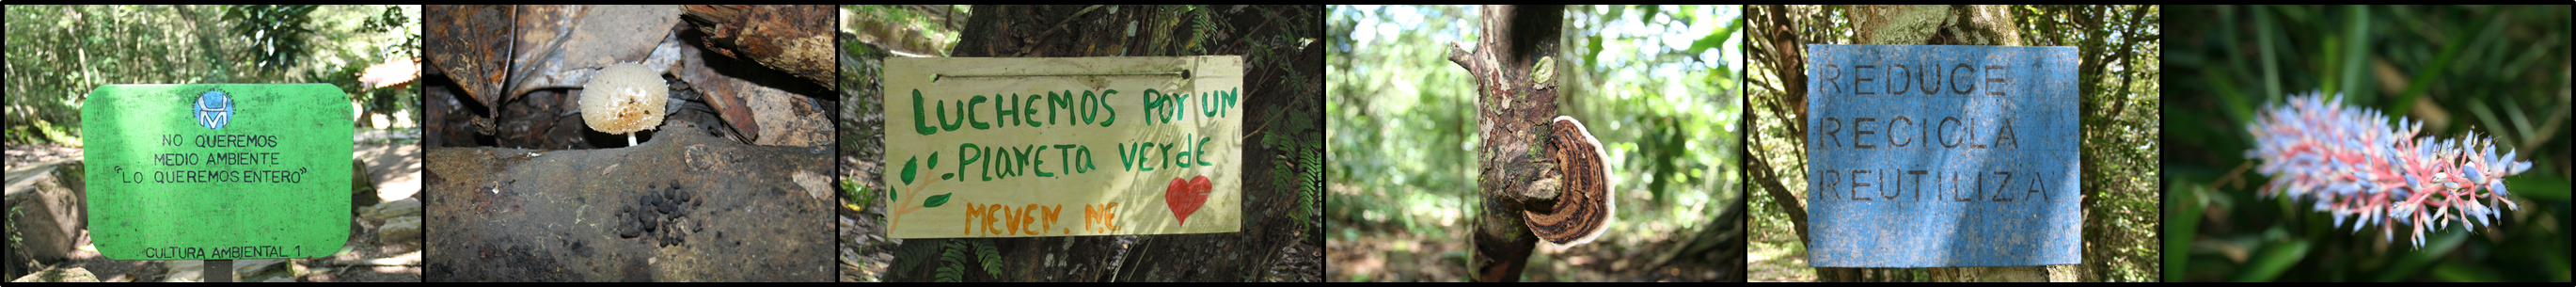 NO QUEREMOS
MEDIO AMBIENTE
"LO QUEREMOS ENTERO"
CULTURA AMBIENTAL 1
LUCHEMOS POR UN
PLANETA VERDE
MEVEN. N.E.
REDUCE
RECICLA
REUTILIZA